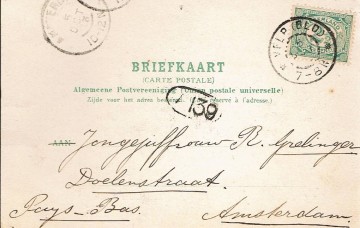 BRIEFKAART
(CARTE POSTALE)
Algemeene Postvereeniging (Union postale universelle)
Zijde voor het adres bestemd. (Côté réservé à l'adresse.)
139
AAN Jongejuffrouw R. Gpelinger
Doelenstraat.
Pays-Bas. Amsterdam.